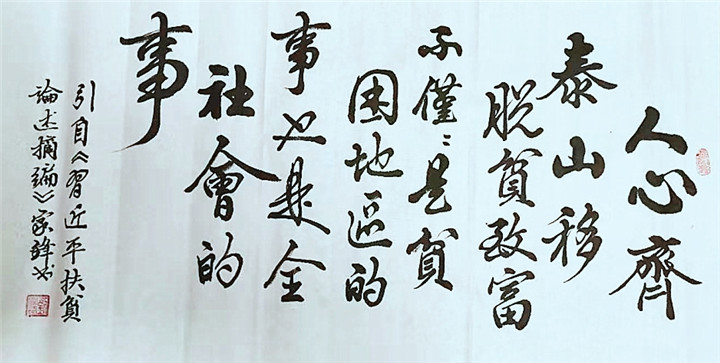 人心齊
泰山移
脫貧致富
不僅々是貧
困地區的
事也是全
社會的
事
引自《習近平扶貧
論述摘編》家鋒书